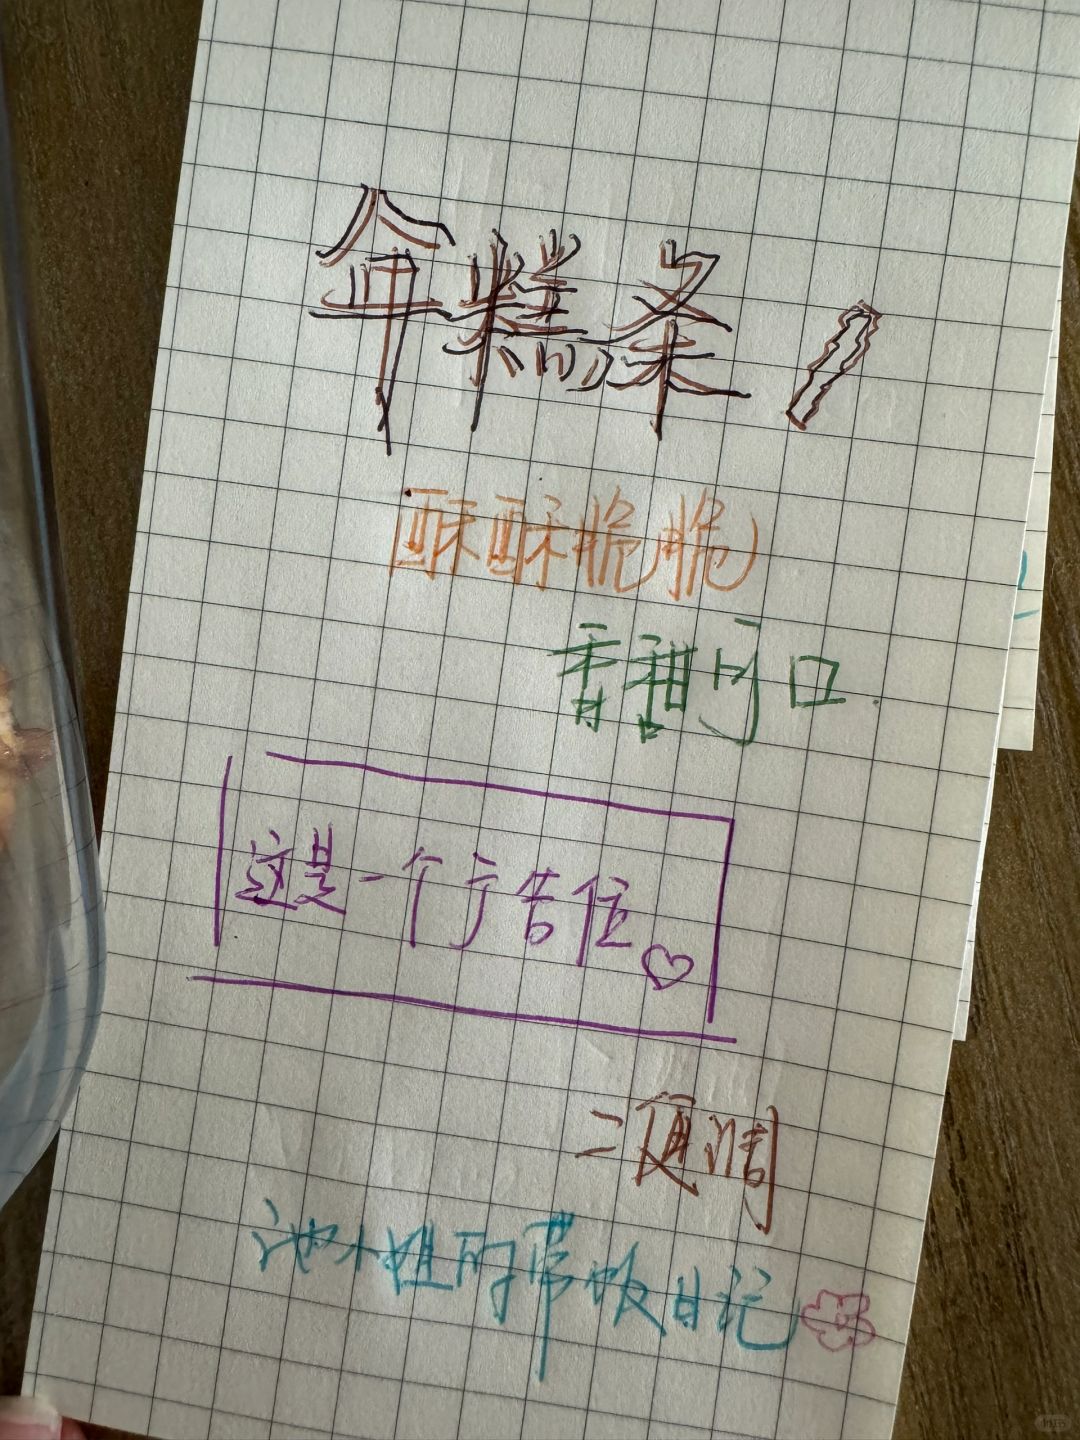 年糕条
酥酥脆脆
香甜可口
这是一个广告位
二更调
池小姐的带饭日记